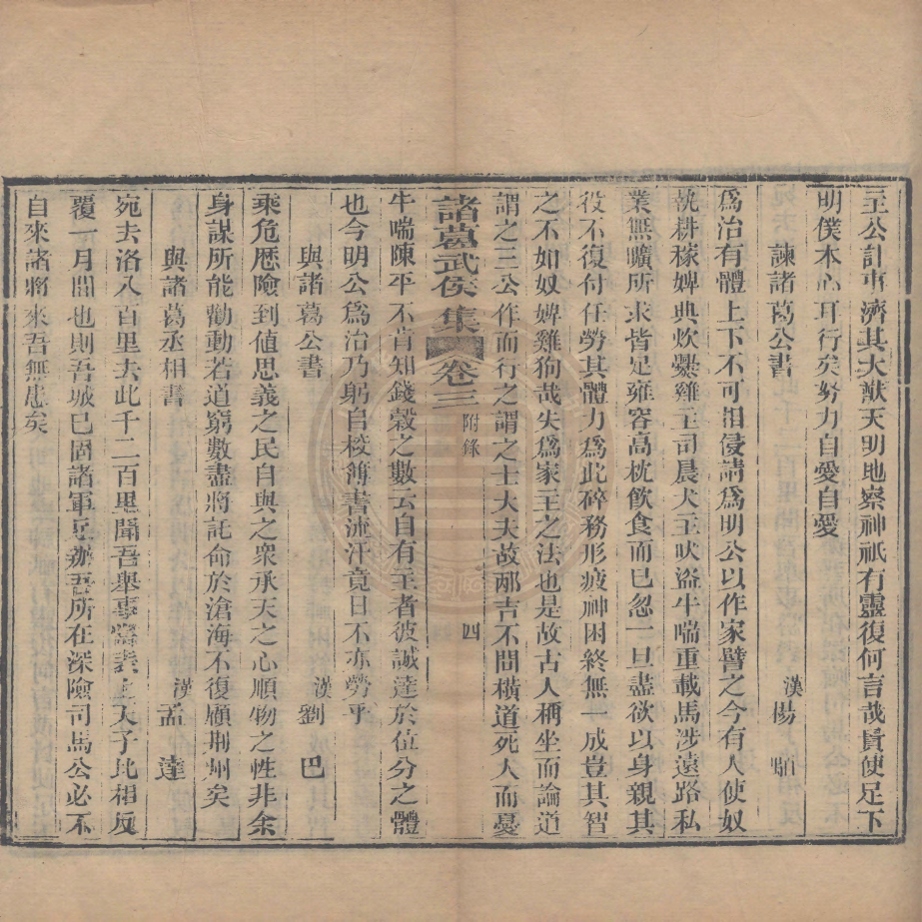 至公計事濟其大猷天明地察神祇有靈復何言哉賢使足下
明僕本心耳行矣努力自愛自愛
諫諸葛公書
漢楊顒
爲治有體上下不可相侵請爲明公以作家譬之今有人使奴
執耕稼婢典炊爨雞主司晨犬主吠盜牛喘重載馬涉遠路私
業無曠所求皆足雍容高枕飲食而已忽一旦盡欲以身親其
役不復付任勞其體力爲此碎務形疲神困終無一成豈其智
之不如奴婢雞狗哉失爲家主之法也是故古人稱坐而論道
謂之三公作而行之謂之士大夫故邴吉不問橫道死人而憂
諸葛武侯集
卷三
附錄
四
牛喘陳平不肯知錢穀之數云自有主者彼誠達於位分之體
也今明公爲治乃躬自校簿書流汗竟日不亦勞乎
與諸葛公書
漢劉巴
乘危歷險到值思義之民自與之衆承天之心順物之性非余
身謀所能勸動若道窮數盡將託命於滄海不復顧荆州矣
與諸葛丞相書
漢孟達
宛去洛八百里去此千二百里聞吾舉事當表上天子比相反
覆一月間也則吾城已固諸軍足辦吾所在深險司馬公必不
自來諸將來吾無患矣